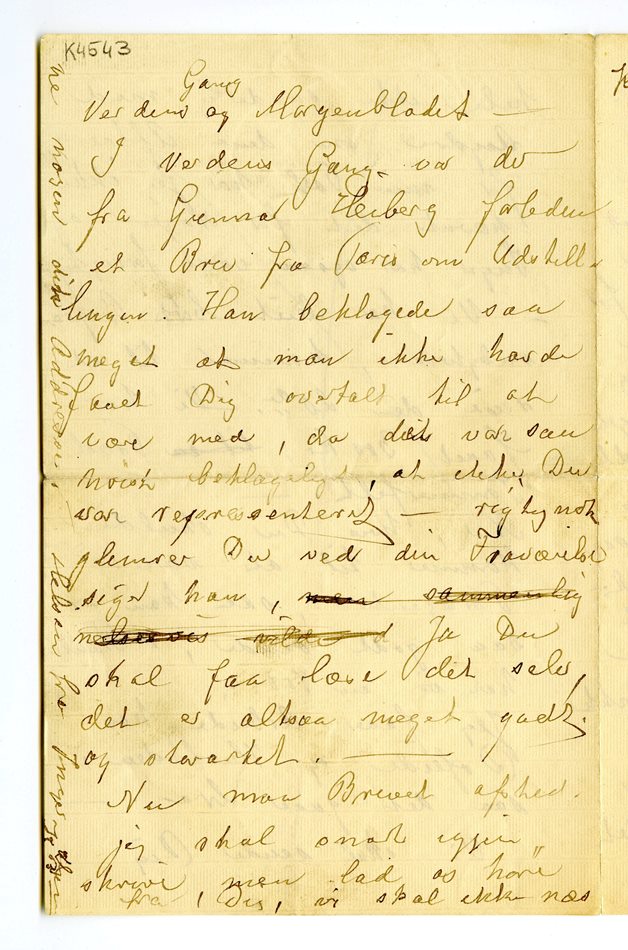 K4543
Gang
Verdens og Morgenbladet —
I Verdens Gang var der
fra Gunnar Heiberg forleden
et Brev fra Paris om Udstill-
lingen. Han beklagede saa
meget at man ikke havde
faaet Dig overtalt til at
være med, da det var saa
höist beklageligt, at ikke Du
var repræsenteret — rigtignok
glimrer Du ved din Fraværelse
siger han, men sammenlig
Ja Du
skal faa læse det selv,
det er altsaa meget godt
og stærket. —
Nu maa Brevet afsted.
jeg skal snart igjen
skrive men lad os höre
fra Dig, vi skal ikke næs
ne nosen din Addresse.
Hilsen fra Inger